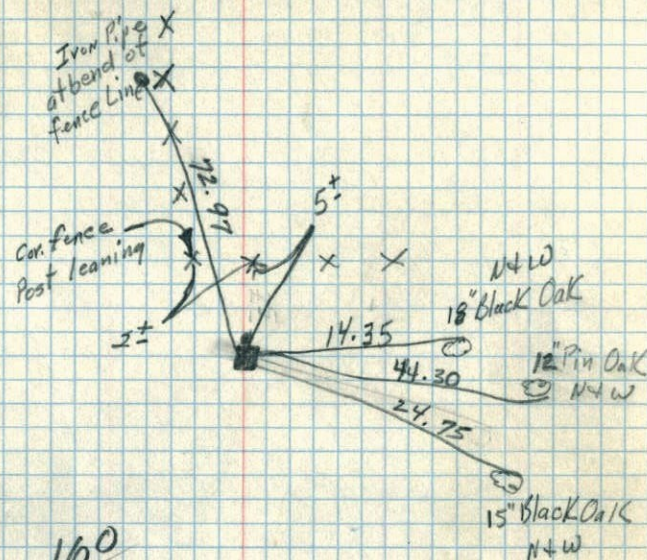 Iron Pipe
at bend of
fence Line
72.97
5±
Cor. fence
Post leaning
2±
N+W
18" Black Oak
14.35
12" Pin Oak
N+W
44.30
24.75
15" Black Oak
N+W
160